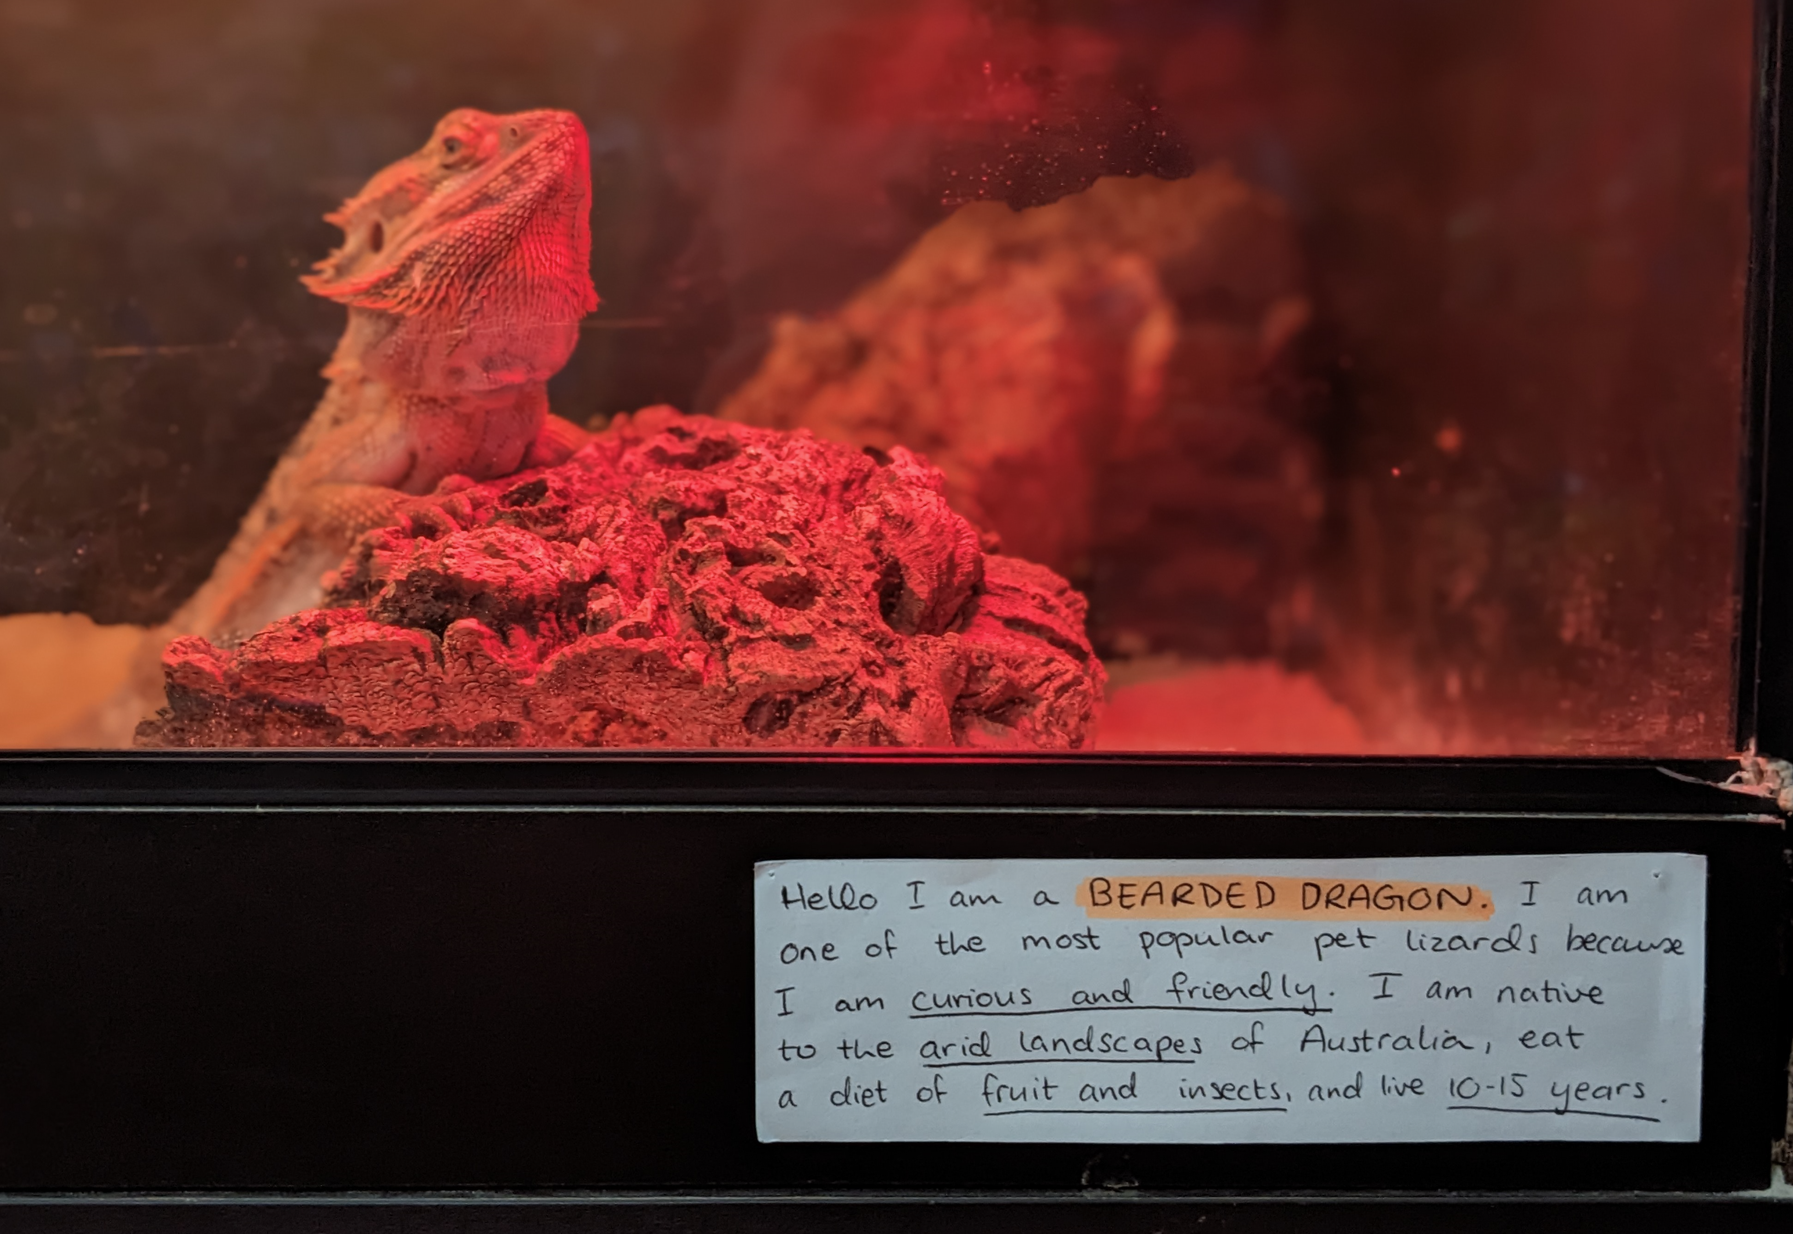 Hello I am a BEARDED DRAGON. I am
one of the most popular pet lizards because
I am curious and friendly. I am native
to the arid landscapes of Australia, eat
a diet of fruit and insects, and live 10-15 years.